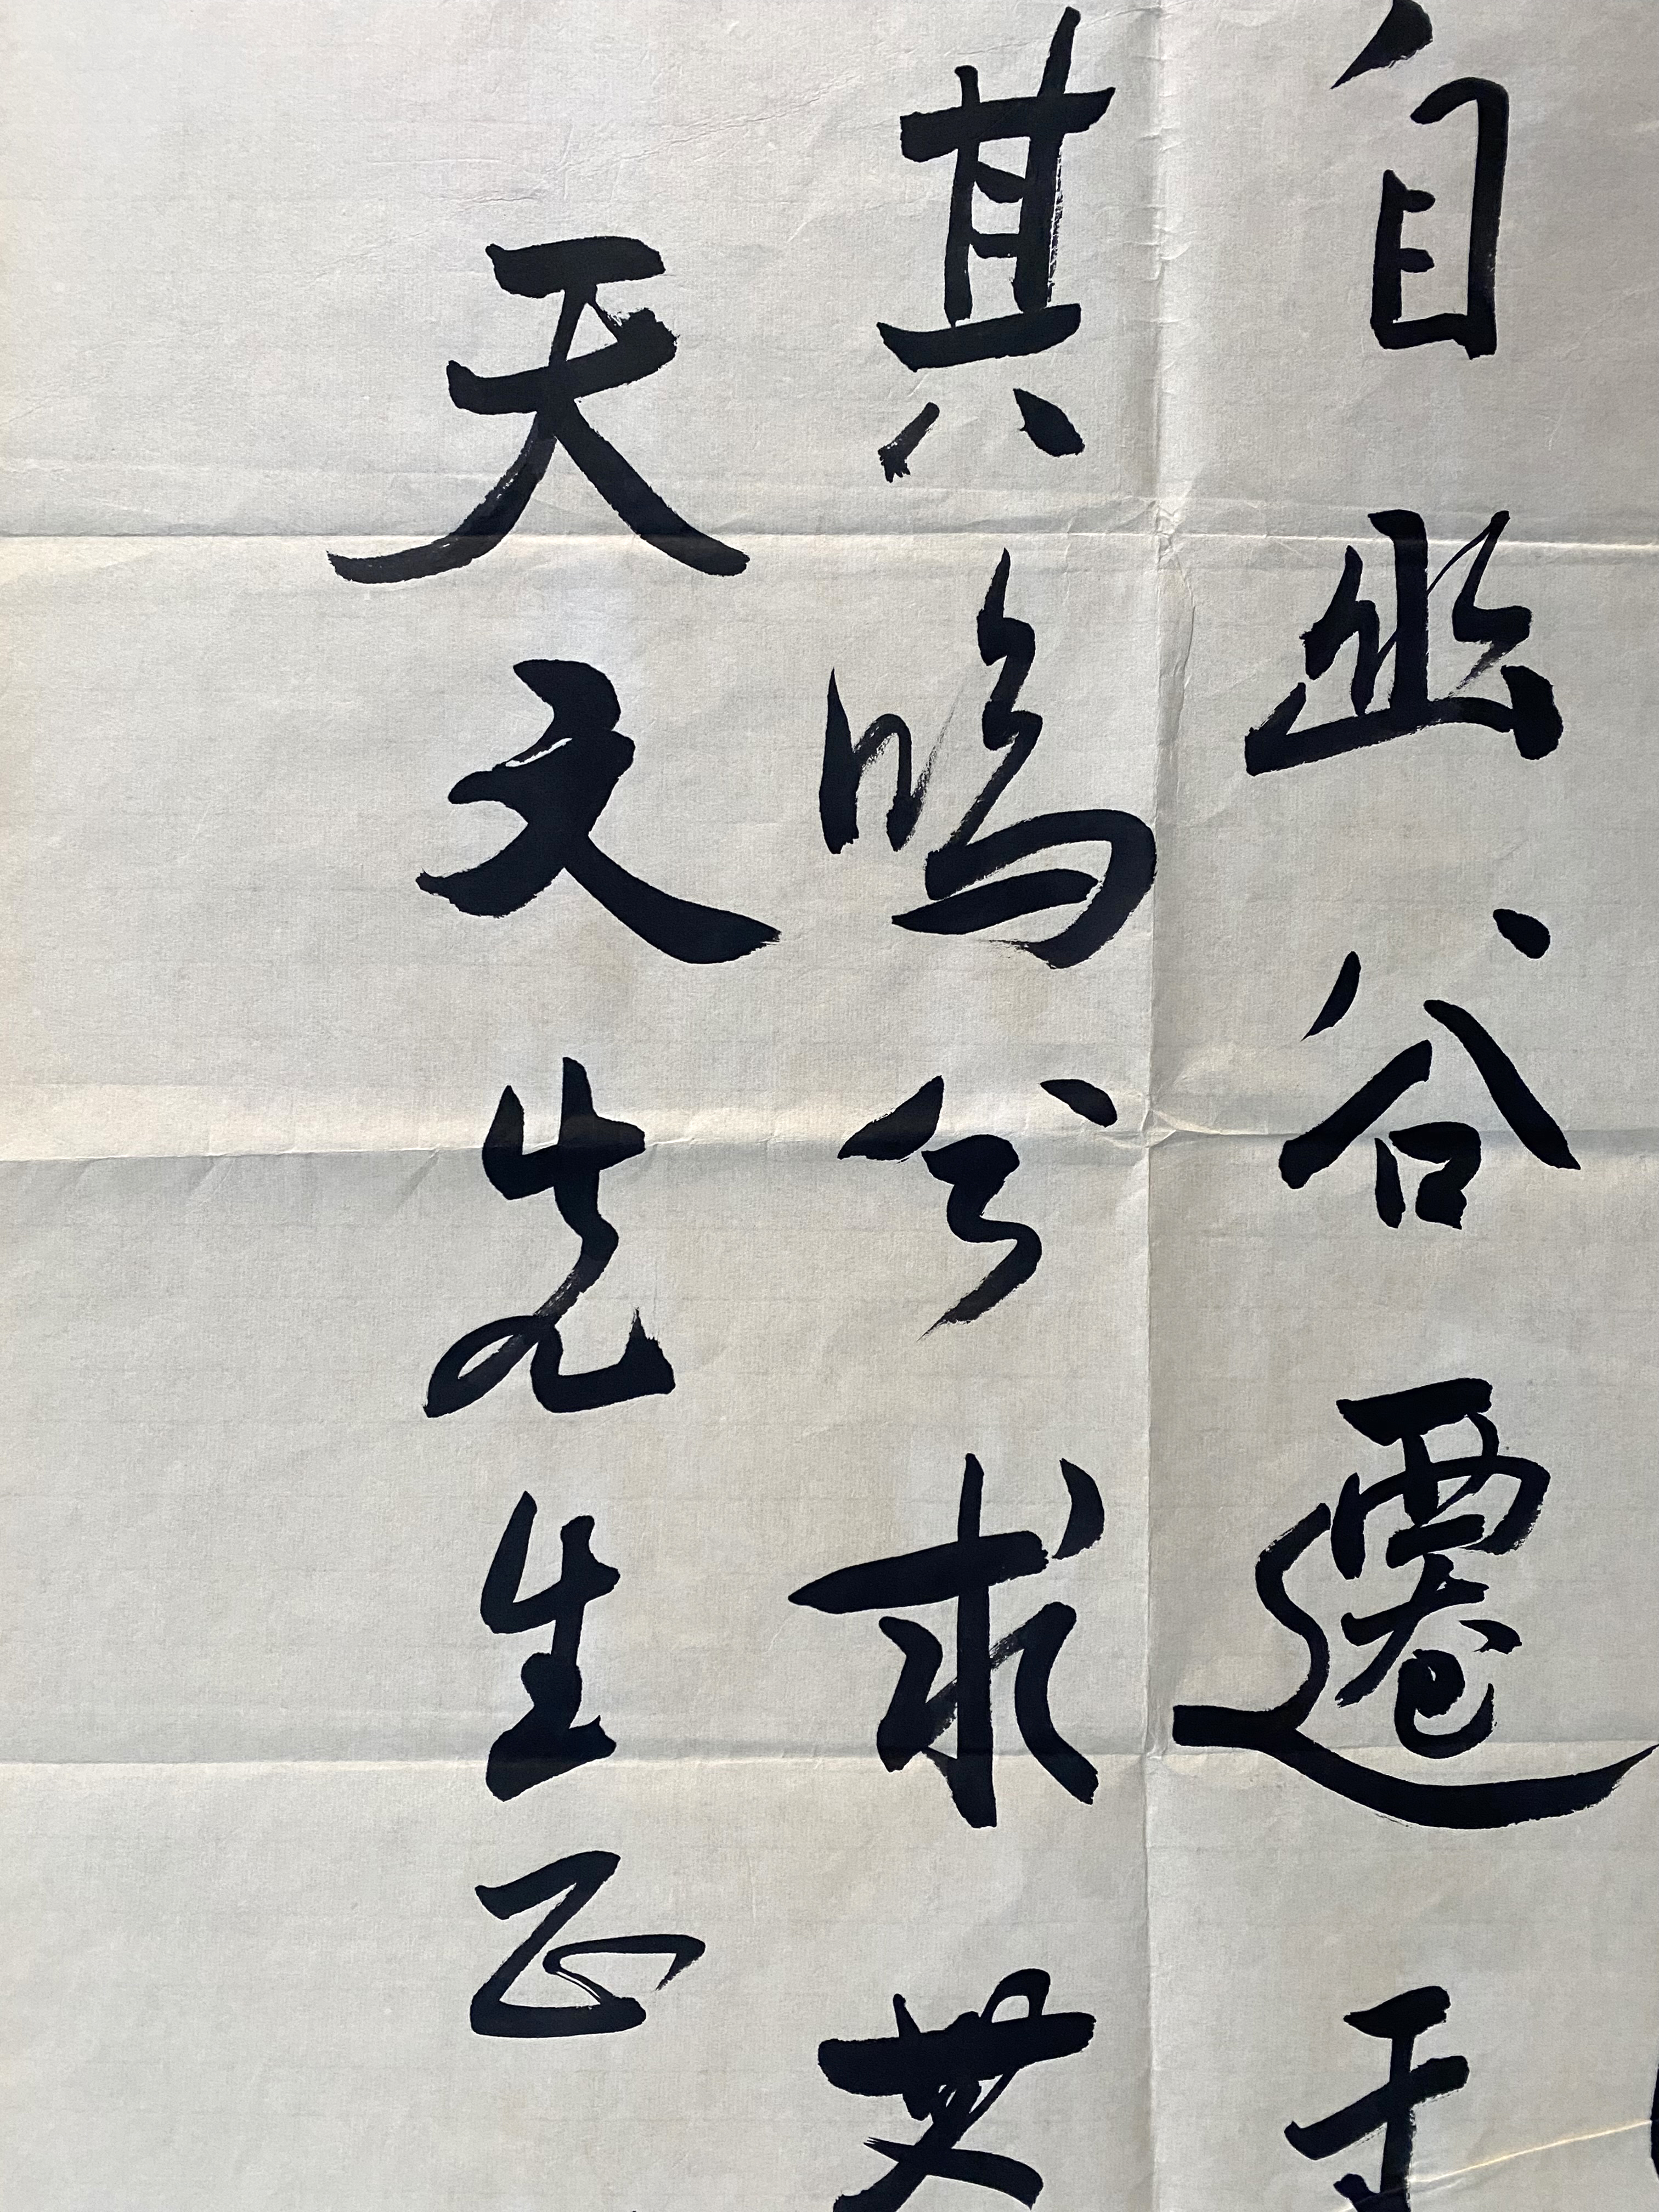 自幽谷遷于
其鳴兮求其
天文先生正